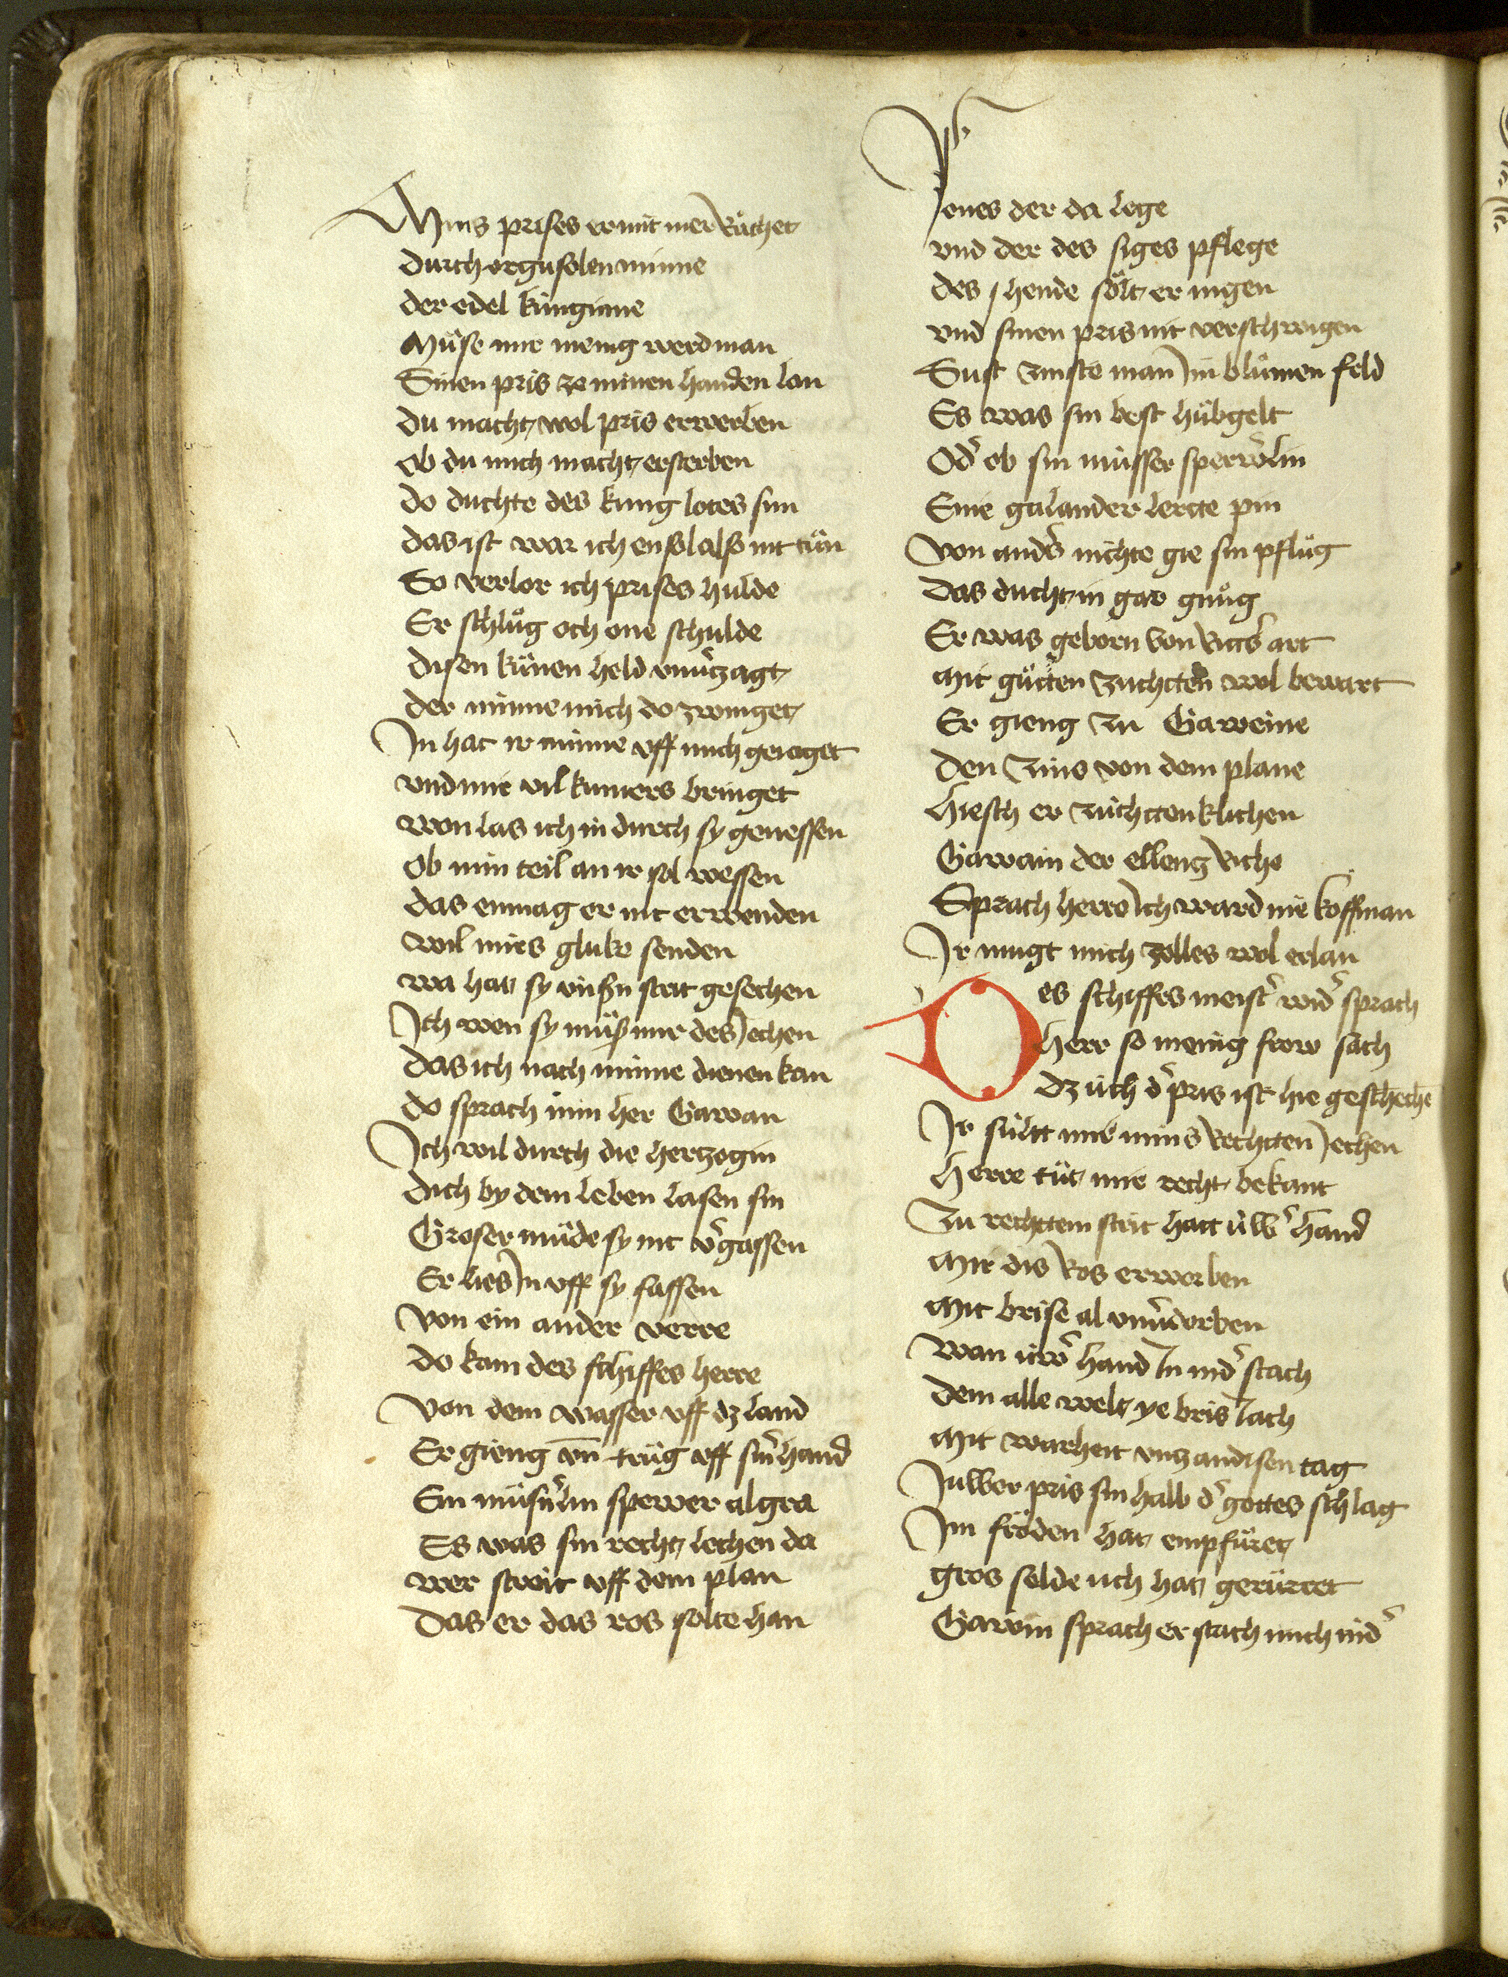 Mins prises vmit mer Rüchet
durch orgusolen minne
der edel küngine
Müse mir menig werd man
Sinen pris ze minen handen lan
du macht wol pris erwerben
ob du mich macht ersterben
do duchte des kung lotes sun
das ist war ich ensol alß nit tün
So verlor ich prises hulde
Er schlůg och one schulde
disen künen held vnuͤczagt
der minne mich do zwinget
In hat ir minne vff mich geiaget
vnd mir vil kumers bringet
won las ich in durch sy genessen
Ob min teil an ir sol wessen
das enmag er nit erwenden
wil mirs gluke senden
wa hat sy vnsͤn strit gesechen
Ich wen sy müß mir des iechen
das ich nach minne dienen kan
do sprach min her Gawan
Ich wil durch die hertzogin
dich by dem leben lasen sin
Groser müde sy nit vͤgassen
Er lies In vff sy sassen
von ein ander verre
do kam des schiffes herre
von dem wasser vff dz land
Er gieng vn̄ trůg vff sinͤ hand
Ein müsͤlin sperwer al gra
Es was sin recht lechen da
wer streit vff dem plan
das er das ros solte han
Jenes der da lege
vnd der des siges pflege
des hende sölt er nigen
vnd sinen pris nit verschwigen
Sust zinste man in blůmen feld
Es was sin best hůbgelt
Odͤ ob sin müsser sperwͤlin
Eine galander lerte pin
von andͤs nichte gie sin pflůg
das ducht in gar gnůg
Er was geborn von Rittͤs art
mit gůtten zuchtten wol bewart
Er gieng zu Gaweine
den zins von dem plane
hiesch er züchttenklichen
Gawain der elleng Riche
Sprach herre Ich ward nie koffman
Ir mugt mich zolles wol erlan
Des schiffes meistͤ widͤ sprach
herr so menig frow sach
dz üch dͤ pris ist hie geschechē
Ir süllt mir mins Rechtten iechen
herre tůt mir recht bekant
zu rechttem strit hatt üwͤ hand
Mir dis Ros erworben
mit brise al vnuͤdorben
wan üwͤ hand In nidͤ stach
dem alle welt ye bris iach
mit warheit vncz an disen tag
Juwer pris sin halb dͤ gottes schlag
Im fröden hat empfüret
gros selde uch hat gerürret
Gawin sprach er stach mich nidͤ